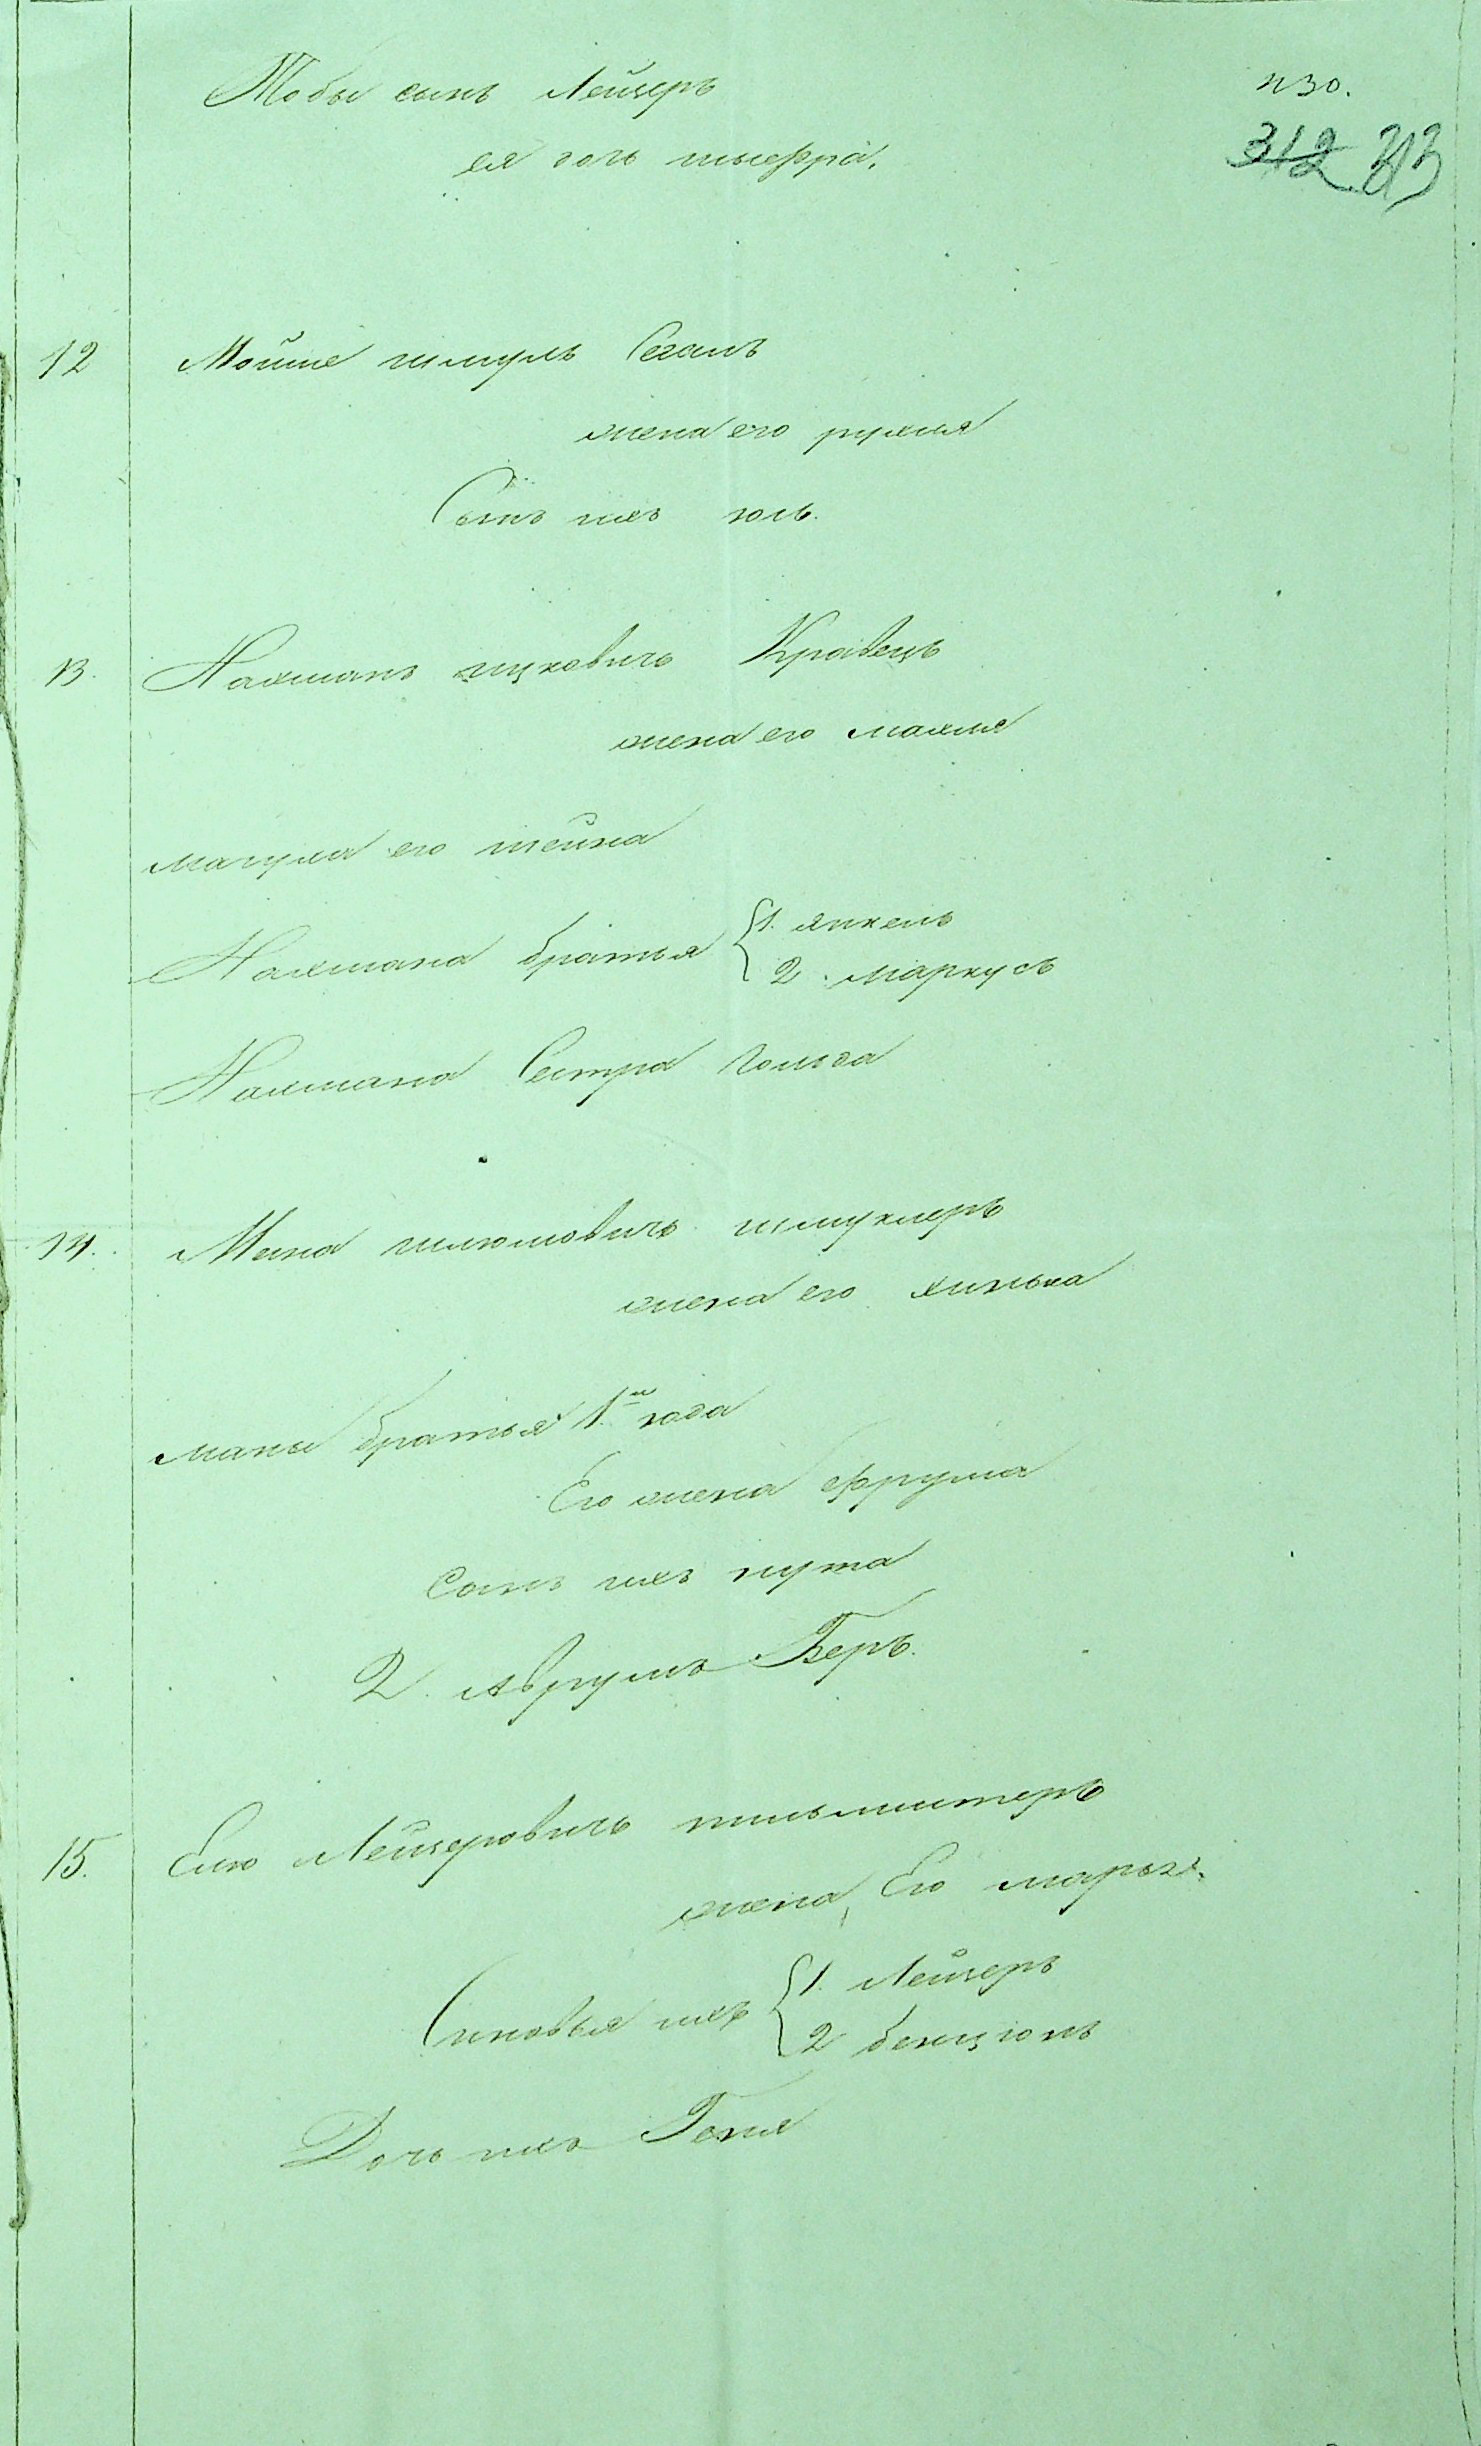 Тобы сынъ Лейзеръ
130.
312 313
ея дочь шыефра.
12 Мойше шмуль Сегаль
жена его рухля
Сынъ ихъ юль.
13. Нахманъ ицковичь Кравецъ
жена его махля
мачуха его шейна
Нахмана братья { 1. янкель
2. маркусъ
Нахмана Сестра Гольда
14. Мана шлюмовичъ шмуклеръ
жена его хинька
маны братья 1й юда
Его жена фрума
Сынъ ихъ нута
2. Аврумъ Беръ.
15. Елю Лейзеровичь
жена Его марьяъ
Сыновья ихъ { 1. Лейзеръ
2 бенціонъ
Дочь ихъ Геня